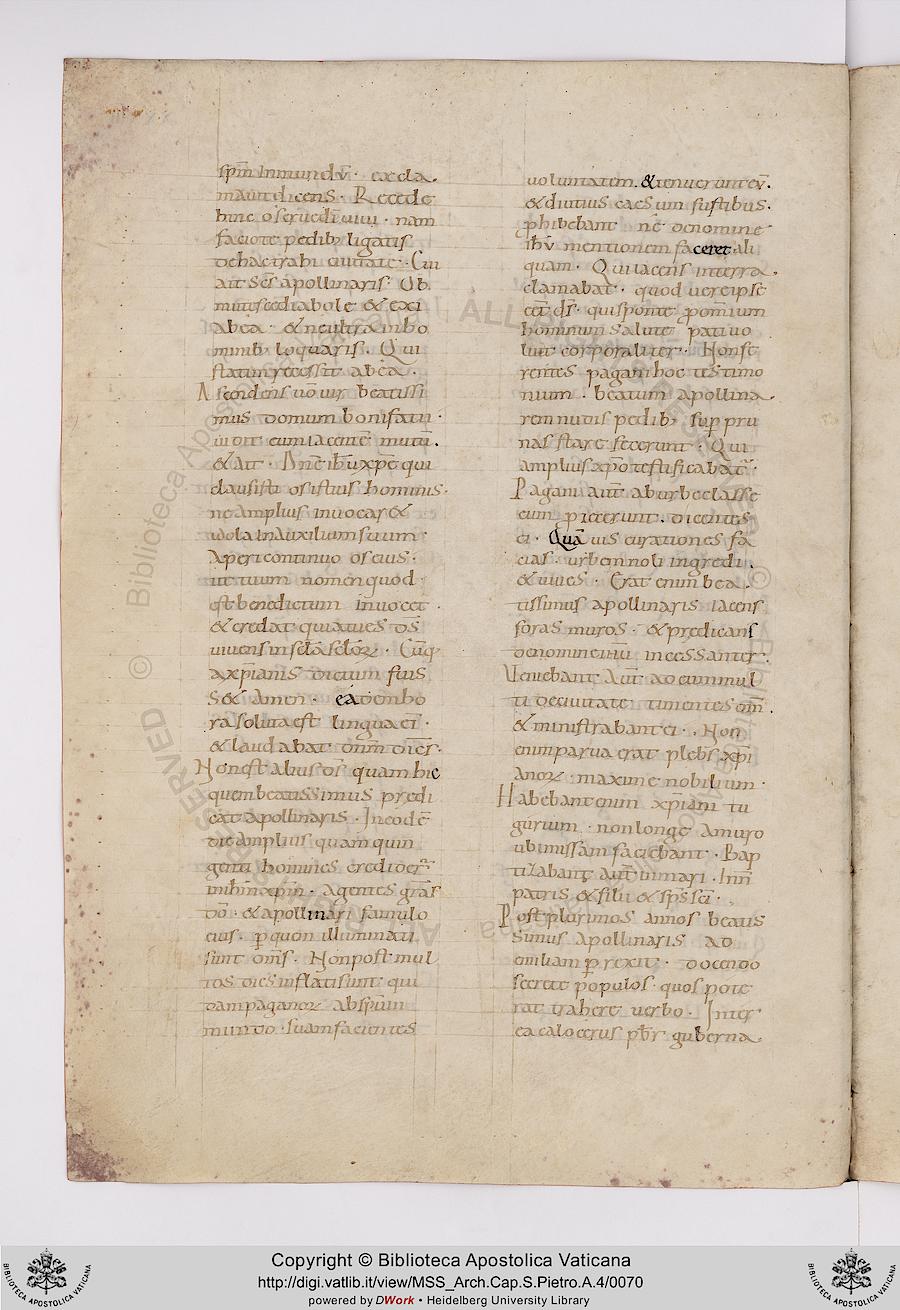 sp̄m Inmundū · excla
mauit dicens · Recede
hinc o serue di uiui · nam
faciote pedib; ligatis
dehac trahi ciuitate · Cui
ait Sc̄s apollinaris · Ob
mutesce diabole & exi
abea · & neultra inho
minib; loquaris · Qui
statim recessit abea ·
Ascendens uō uir beatissi
mus domum bonifatii ·
uidit eum lacentē mutū ·
& ait · Dn̄e ih̄u xp̄e qui
clausisti os istius hominis ·
ne amplius inuocar&
idola in auxilium suum ·
Aperi continuo os eius ·
ut tuum nomen quod
est benedictum inuocet ·
& credat quia tu es ds̄
uiuens in sc̄la sc̄loꝝ · Cūq;
axp̄ianis dictum fuis
s& Amen · ea denho
ra soluta est lingua ei ·
& laudabat dn̄m dicēs ·
Non est alius ds̄ quam hic
quem beatissimus predi
cat apollinaris · In eodē
die amplius quam quin
genti homines crediderͬ
inih̄m xp̄m · Agentes grās
dō · & apollinari famulo
eius · p quem illuminati
sunt om̄s · Non post mul
tos dies inflati sunt qui
dam paganoꝝ absp̄um
mundo · suam facientes
uoluntatem · & tenuerunt eū ·
& diutius caesum fustibus ·
phibebant nē denomine
ih̄u mentionem faceret ali
quam · Qui iacens interra ·
clamabat · quod uere ipse
eēt ds̄ · qui sponte p om̄ium
hominum salute pati uo
luit corporaliter · Non fe
rentes pagani hoc testimo
nium · beatum apollina
rem nudis pedib; sup pru
nas stare fecerunt · Qui
amplius xp̄o testificabāt ·
Pagani aut̄ ab urbe classe
eum piecerunt · dicentes
ei · Quā uis curationes fa
cias · urbem noli ingredi ·
& uiues · Erat enim bea
tissimus apollinaris iacens
foras muros · & predicans
denomine ih̄u incessanter ·
Veniebant Aut̄ ad eum mul
ti deciuitate timentes dm̄ ·
& ministrabant ei · Non
enim parua erat plebs xp̄i
anoꝝ maxime nobilium ·
Habebant enim xp̄iani tu
gurium · non longe amuro
ubi missam faciebant · Bap
tizabant aut̄ in mari · Innī
patris & filii & sp̄s sc̄i ·
Post plurimos annos beatis
simus apollinaris ad
emiliam prexit · docendo
secret populos · quos pote
rat trahere uerbo · Inter
ea calocerus pb̄r guberna
© Biblioteca Apostolica Vaticana
ALL RIGHTS RESERVED
Copyright © Biblioteca Apostolica Vaticana
http://digi.vatlib.it/view/MSS_Arch.Cap.S.Pietro.A.4/0070
powered by DWork • Heidelberg University Library
BIBLIOTECA APOSTOLICA VATICANA
BIBLIOTECA APOSTOLICA VATICANA